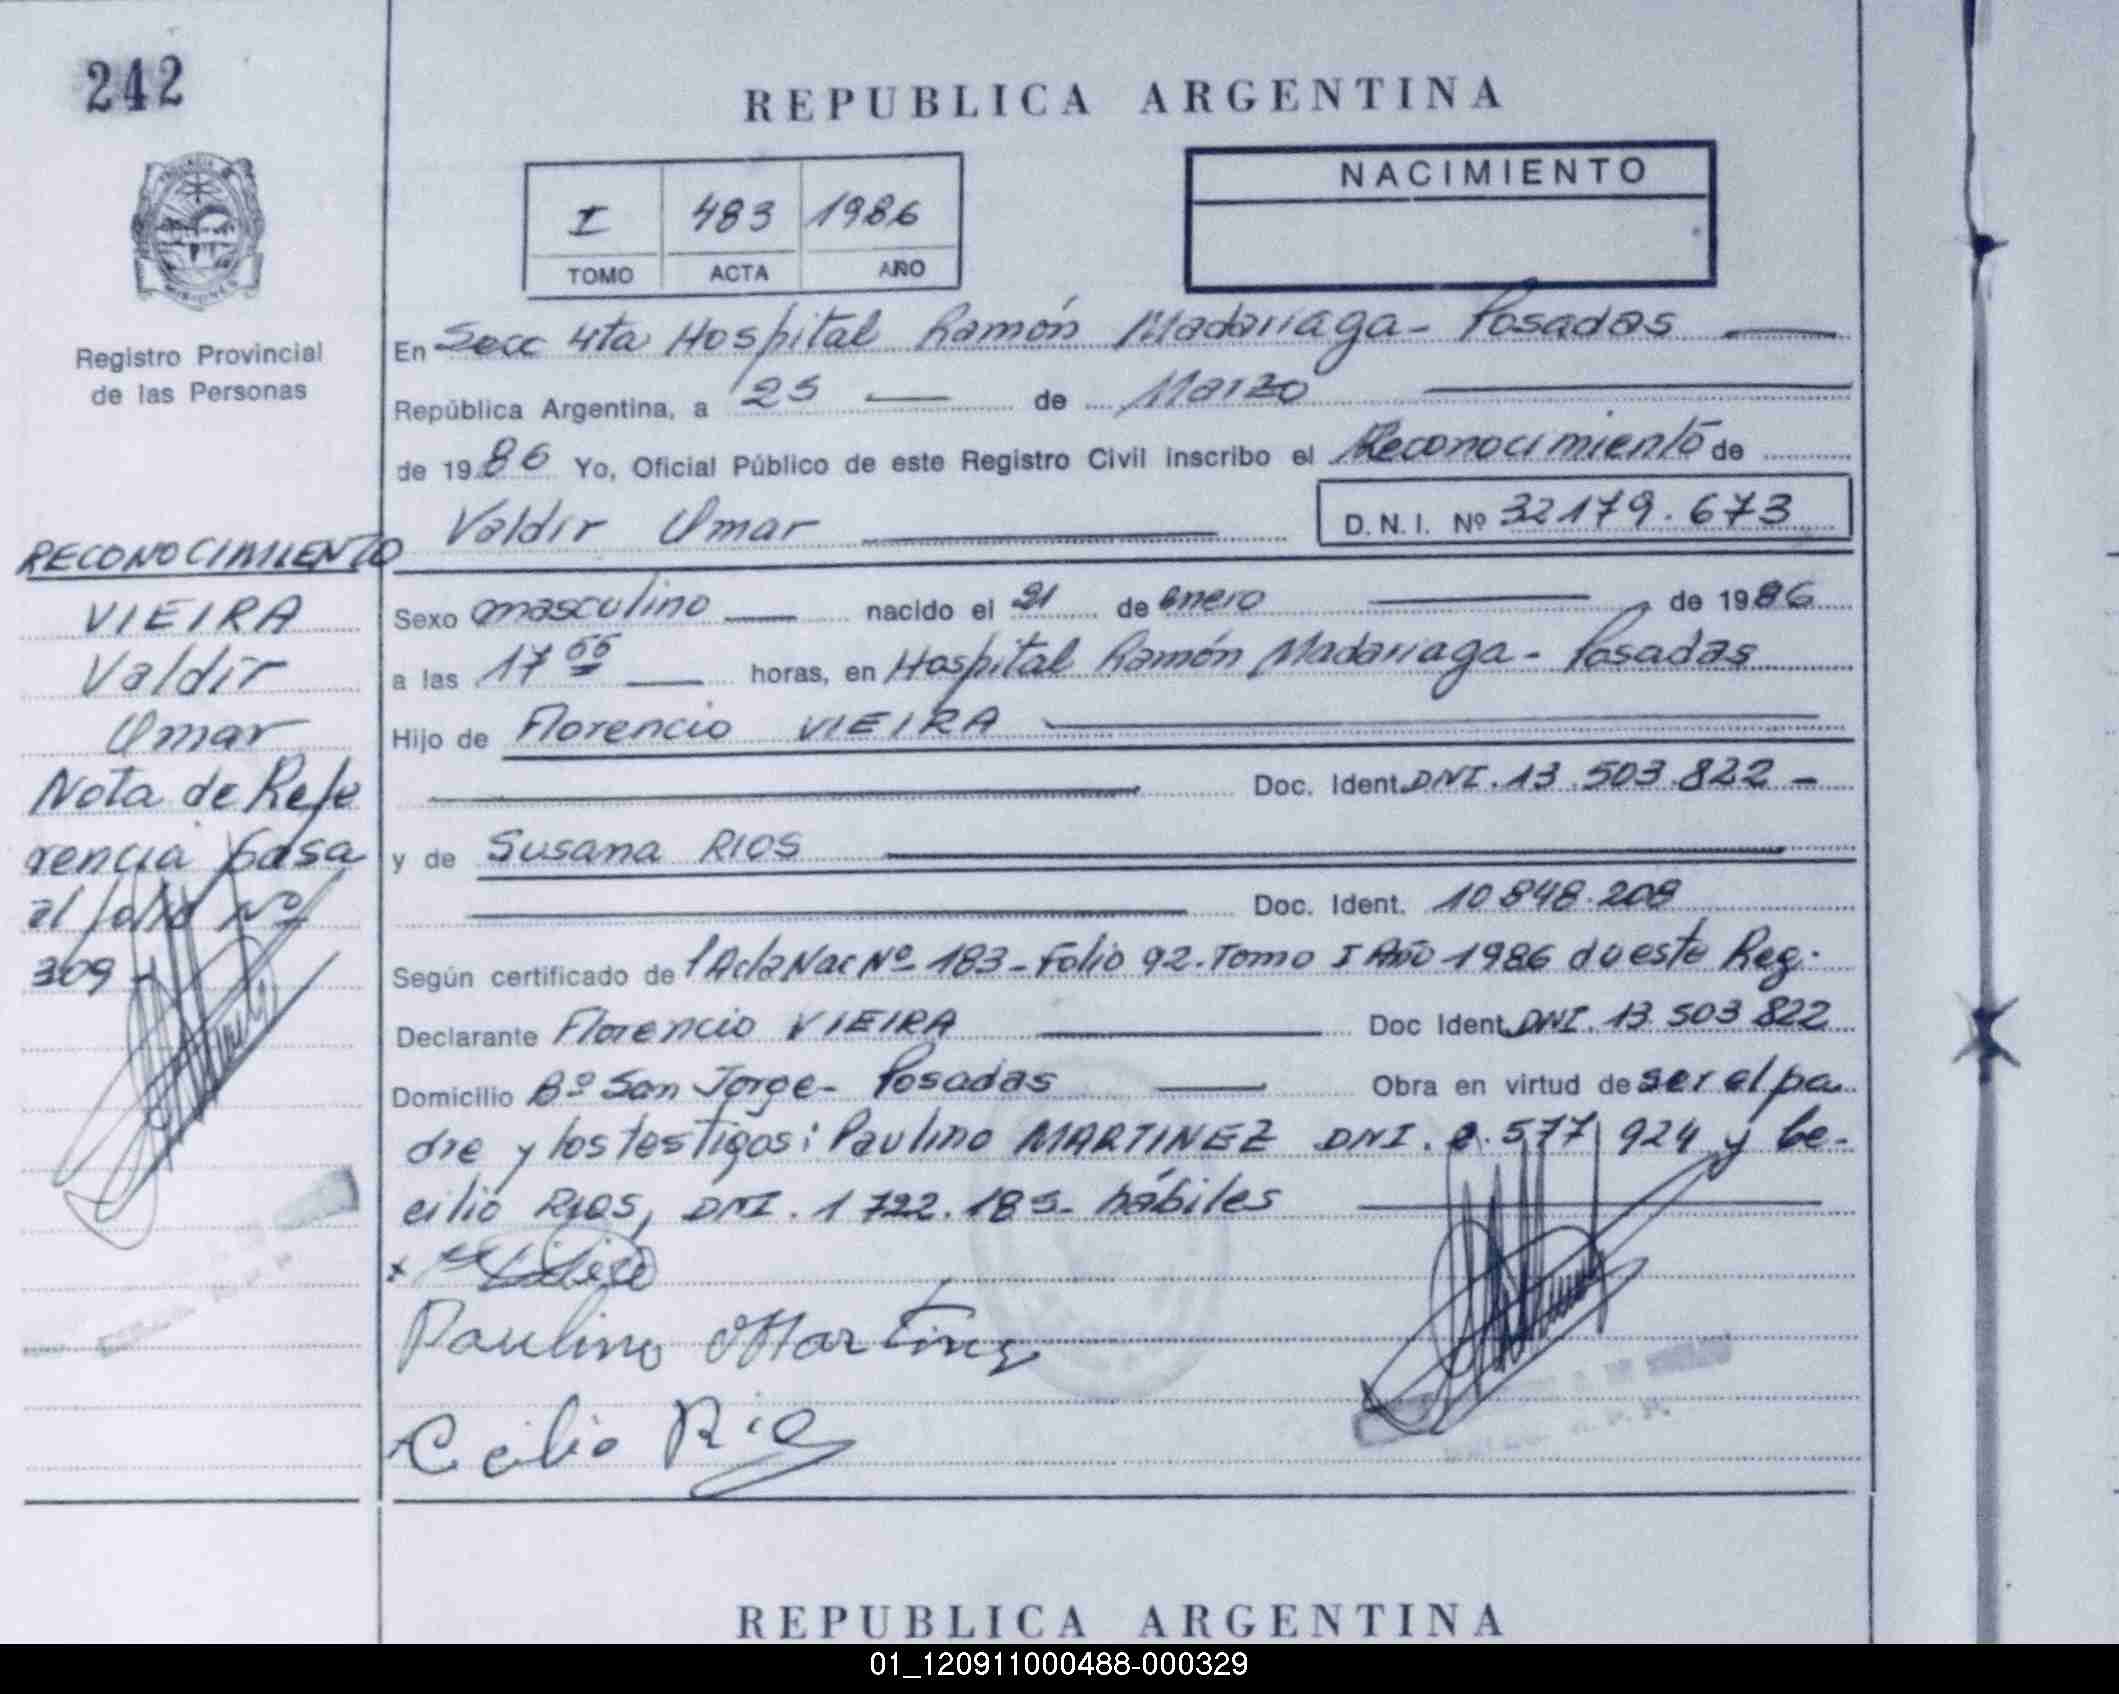 242
REPUBLICA ARGENTINA
NACIMIENTO
I 483 1986
TOMO ACTA AÑO
Registro Provincial
de las Personas
En Secc 4ta Hospital Ramón Madariaga - Posadas
República Argentina, a 25 de Marzo
de 1986 Yo, Oficial Público de este Registro Civil inscribo el Reconocimiento de
Valdir Omar D.N.I. Nº 32179.673
RECONOCIMIENTO
VIEIRA
Valdir
Omar
Nota de Refe
rencia pasa
al folio Nº
309-
Sexo masculino nacido el 21 de enero de 1986
a las 17 horas, en Hospital Ramón Madariaga - Posadas
Hijo de Florencio VIEIRA
Doc. Ident. DNI. 13.503.822 -
y de Susana RIOS
Doc. Ident. 10848.208
Según certificado de Acta Nac Nº 183 - Folio 92. Tomo I Año 1986 de este Reg.
Declarante Florencio VIEIRA Doc Ident. DNI. 13 503 822
Domicilio Bº San Jorge - Posadas Obra en virtud de ser el pa
dre y los testigos: Paulino MARTINEZ DNI. 577 924 y Ce-
cilio RIOS, DNI. 1 722.185 - hábiles
Paulino Martinez
Cecilio Rio
REPUBLICA ARGENTINA
01_120911000488-000329